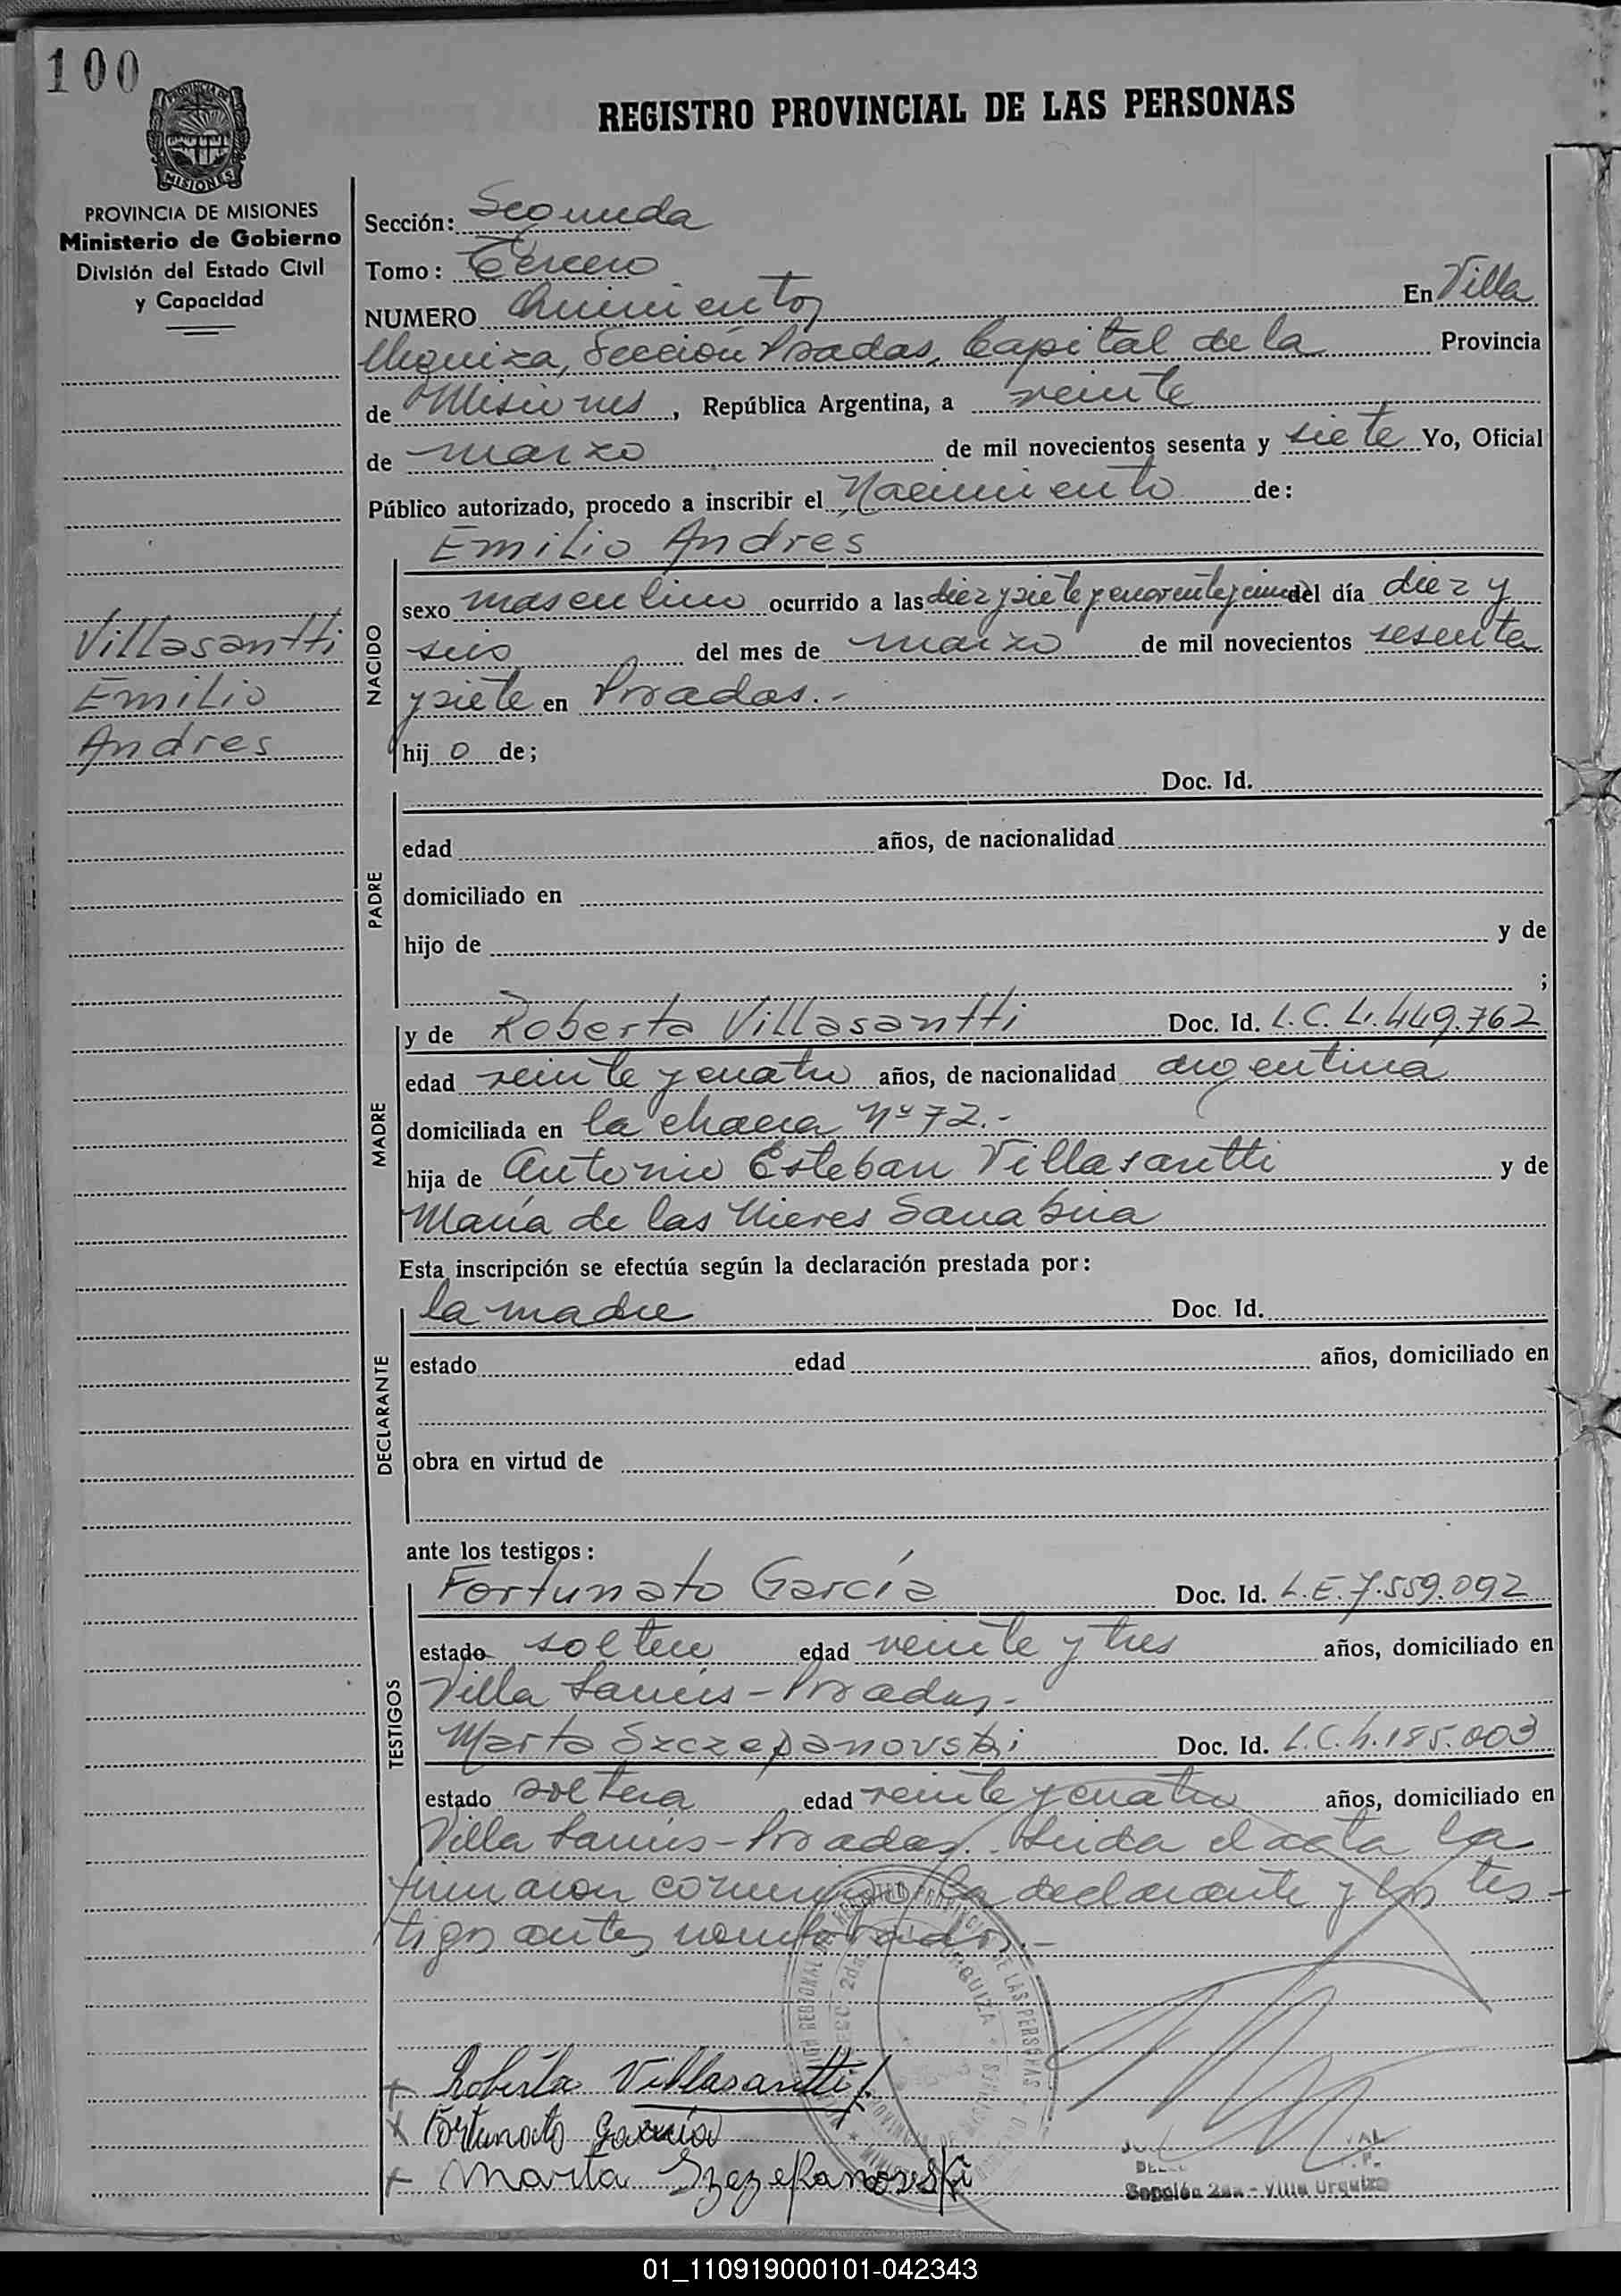 100
REGISTRO PROVINCIAL DE LAS PERSONAS
MISIONES
PROVINCIA DE MISIONES
Ministerio de Gobierno
División del Estado Civil
y Capacidad
Sección: Segunda
Tomo: Tercero
NUMERO Quinientos En Villa
Urquiza, Sección Posadas, Capital de la Provincia
de Misiones, República Argentina, a veinte
de marzo de mil novecientos sesenta y siete Yo, Oficial
Público autorizado, procedo a inscribir el Nacimiento de:
Emilio Andres
NACIDO
sexo masculino ocurrido a las diez y siete y cuarenta y cinco del día diez y
seis del mes de marzo de mil novecientos sesenta
y siete en Posadas.-
hijo de;
Villasantti
Emilio
Andres
PADRE
Doc. Id.
edad años, de nacionalidad
domiciliado en
hijo de y de
;
MADRE
y de Roberta Villasantti Doc. Id. L.C. 4.449.762
edad veinte y cuatro años, de nacionalidad argentina
domiciliada en la chacra Nº 72.-
hija de Antonio Esteban Villasantti y de
María de las Nieves Sanabria
Esta inscripción se efectúa según la declaración prestada por:
DECLARANTE
la madre Doc. Id.
estado edad años, domiciliado en
obra en virtud de
ante los testigos:
TESTIGOS
Fortunato García Doc. Id. L.E. 7.559.092
estado soltero edad veinte y tres años, domiciliado en
Villa Lanús - Posadas,-
Marta Szczepanovski Doc. Id. L.C. 4.185.003
estado soltera edad veinte y cuatro años, domiciliado en
Villa Lanús - Posadas. Leida el acta la
firmaron conmigo la declarante y los tes-
tigos antes nombrados.-
Roberta Villasantti
Fortunato García
Marta Szczepanoveski
Sección 2da - Villa Urquiza
01_110919000101-042343